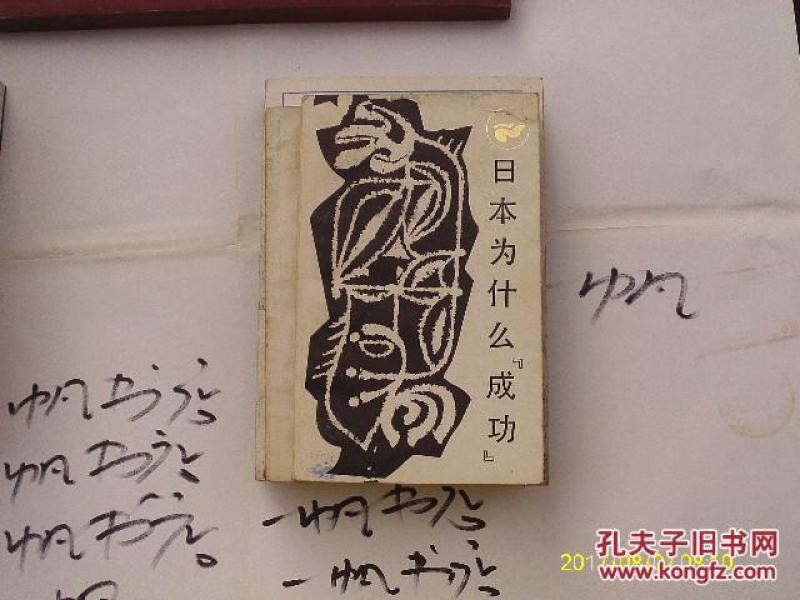 日本为什么『成功』
一帆
帆书店
帆书店
帆书店
一帆书店
一帆书店
孔夫子旧书网
www.kongfz.com